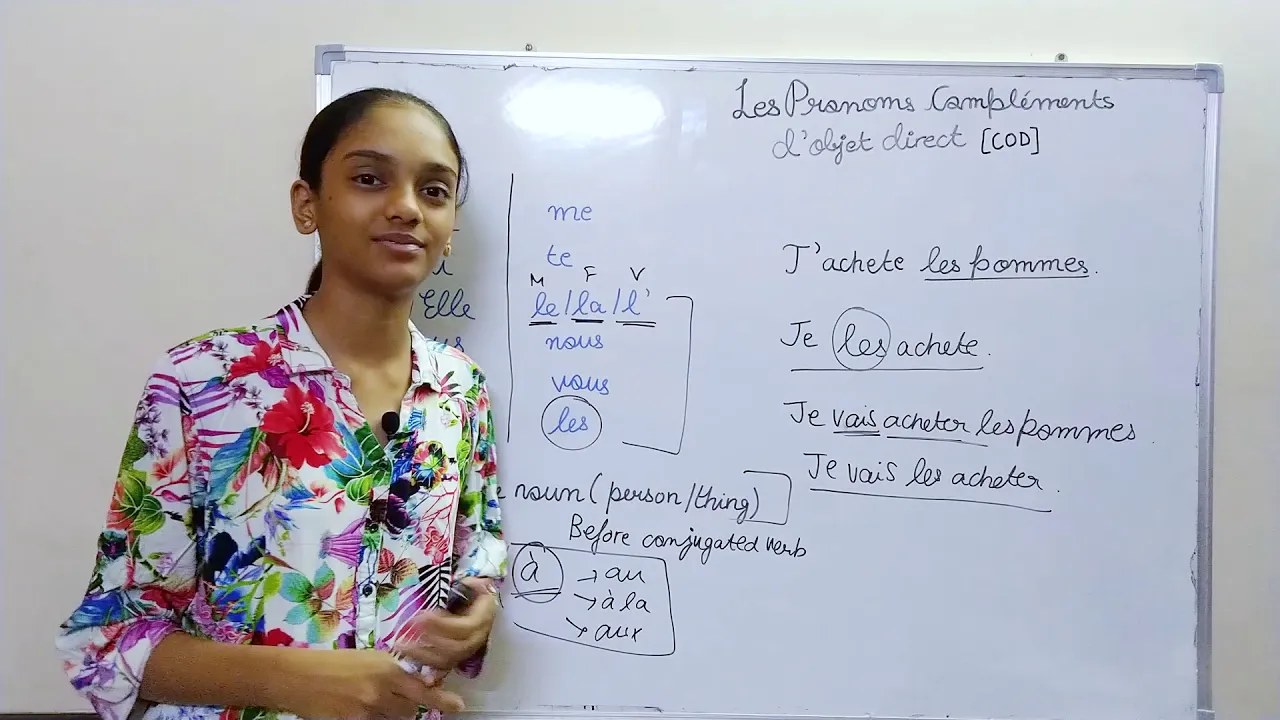 Les Pronoms Compléments
d'objet direct [COD]
me
te
M F V
Elle le/la/l'
nous
vous
les
J'achete les pommes.
Je les achete.
Je vais acheter les pommes.
Je vais les acheter.
noun (person/thing)
Before conjugated verb
à → au
→ à la
→ aux